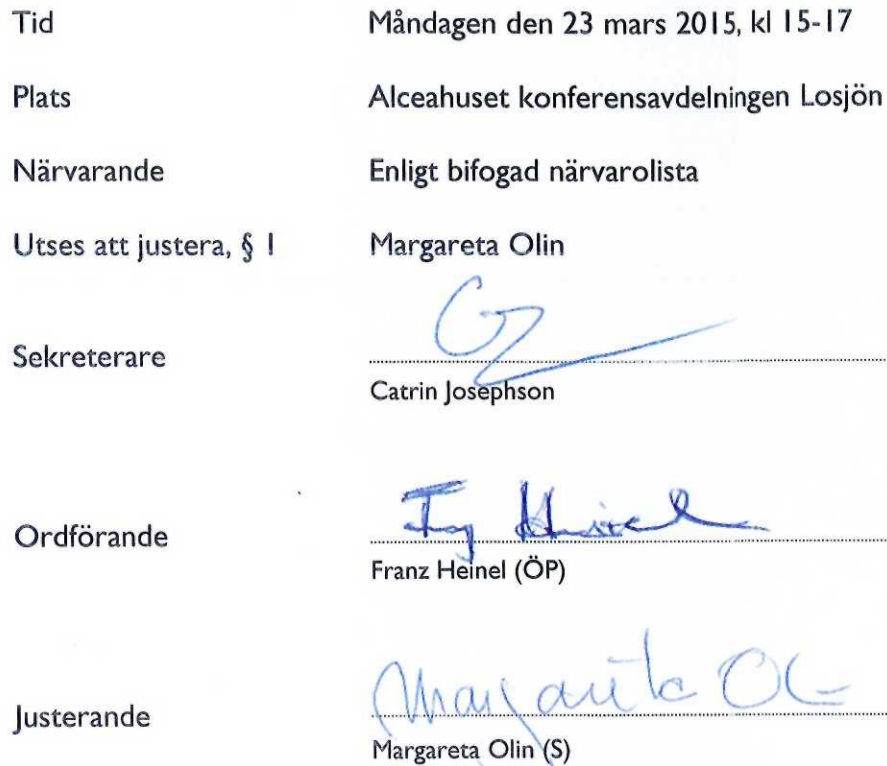 Tid Måndagen den 23 mars 2015, kl 15-17
Plats Alceahuset konferensavdelningen Losjön
Närvarande Enligt bifogad närvarolista
Utses att justera, § 1 Margareta Olin
Sekreterare
Catrin Josephson
Ordförande
Franz Heinel (ÖP)
Margareta Ol
Justerande
Margareta Olin (S)